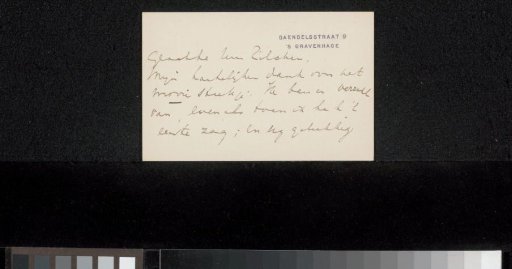 DAENDELSSTRAAT 9
'S GRAVENHAGE
Geachte Heer Zilcken,
Mijn hartelijken dank voor het
mooie stukje. Ik ben er
van, evenals toen ik het
eerste zag; en erg gelukkig